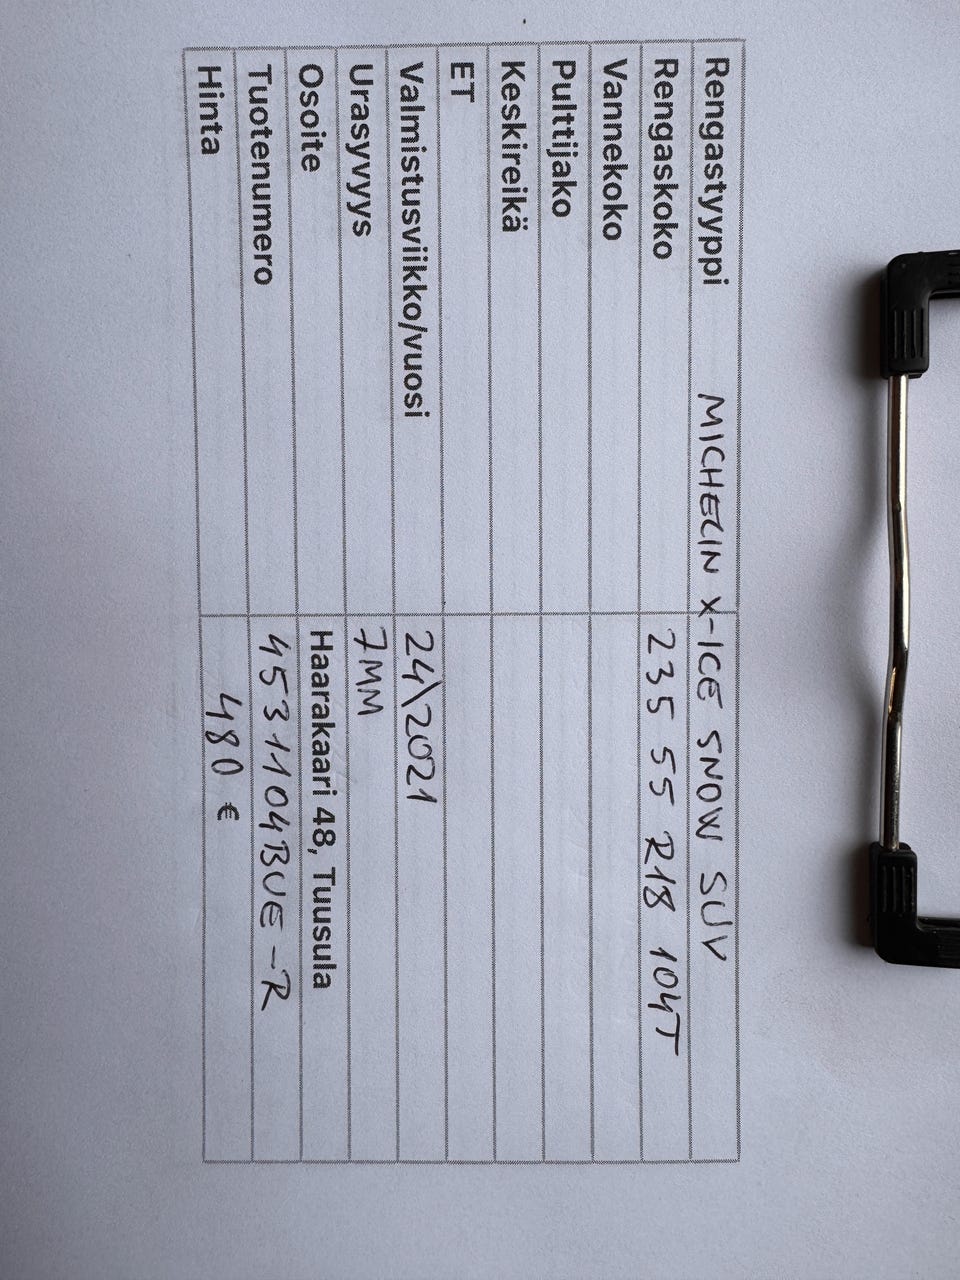 Rengastyyppi MICHELIN X-ICE SNOW SUV
Rengaskoko 235 55 R18 104T
Vannekoko
Pulttijako
Keskireikä
ET
Valmistusviikko/vuosi 24\2021
Urasyvyys 7MM
Osoite Haarakaari 48, Tuusula
Tuotenumero 4531104BUE-R
Hinta 480 €